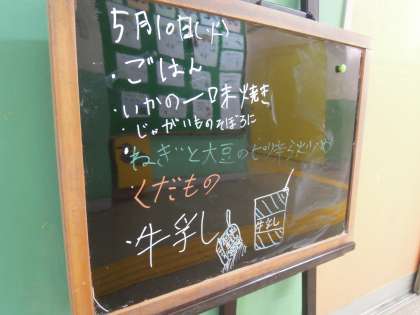 5月10日(火)
・ごはん
・いかの一味焼き
・じゃがいものそぼろに
・ねぎと大豆のピリ辛
くだもの
・牛乳
牛乳